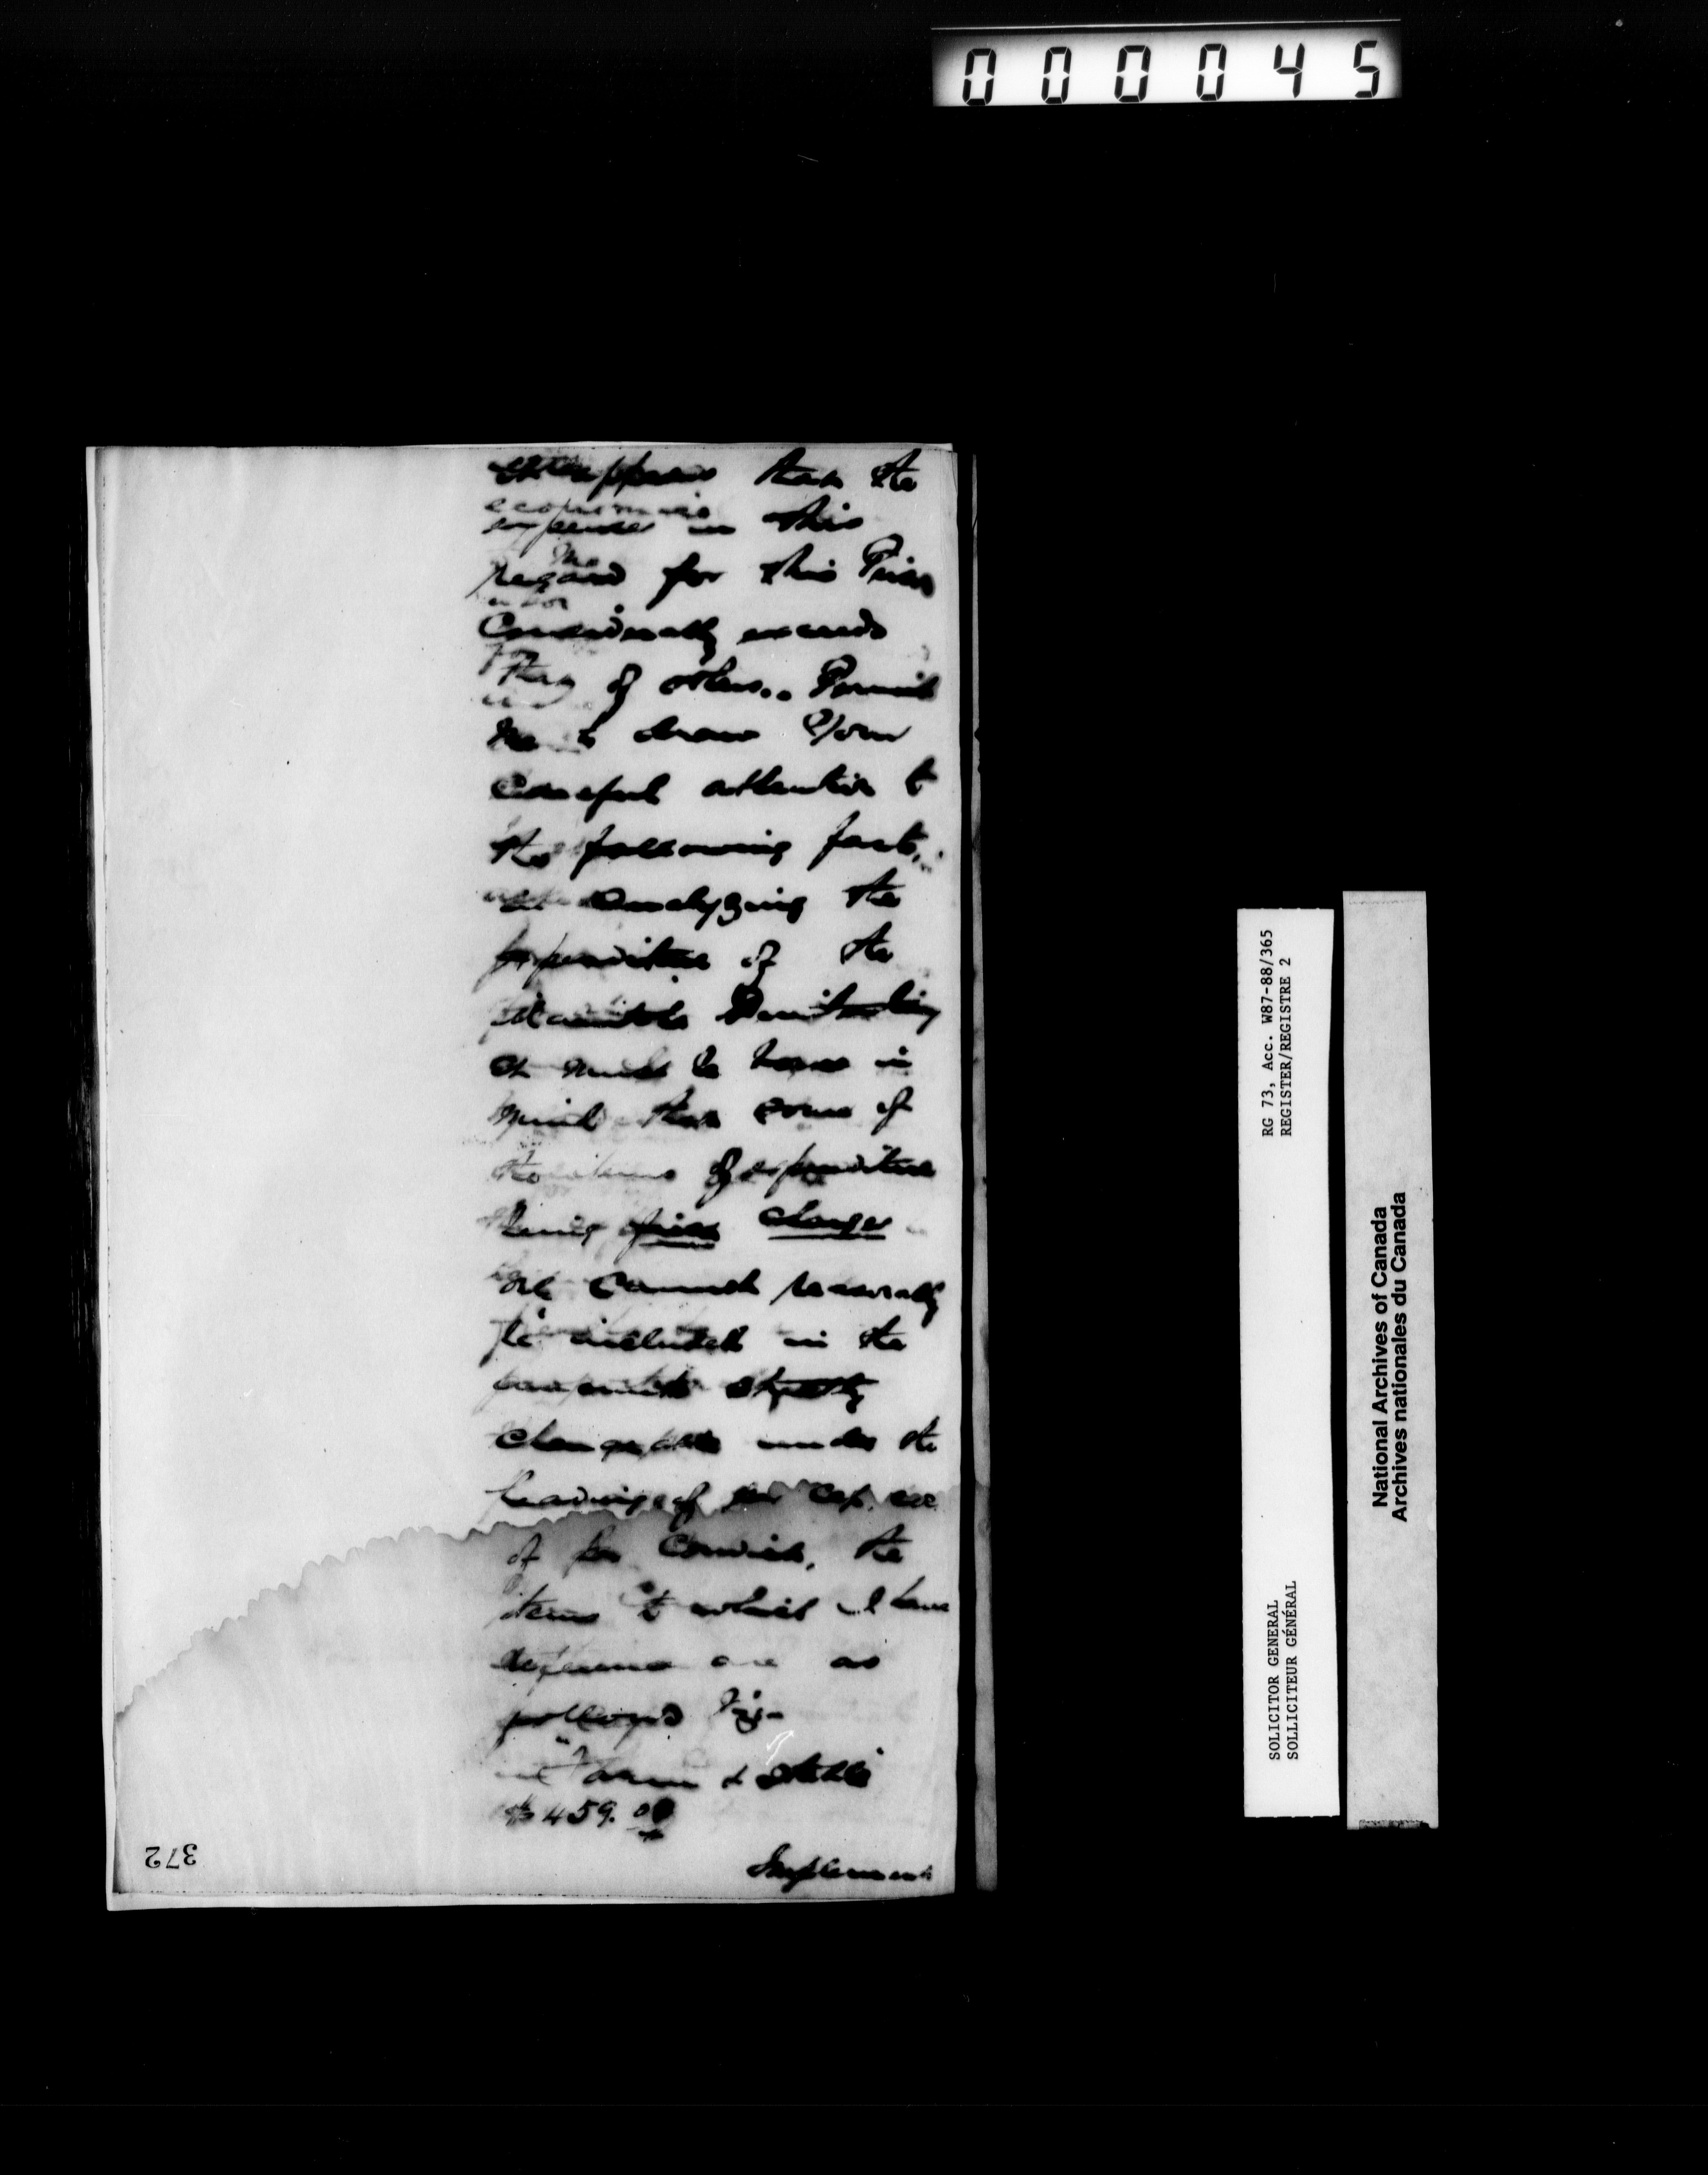 000045
it appears that the
expense in this
regard for this Prison
Considerably exceeds
that of others. Permit
me to draw Your
Careful attention to
the following facts,
analyzing the
expenditure of the
Manitoba Penitentiary
it must be borne in
mind that some of
the items of expenditure
being fixed charges
Cannot reasonably
be included in the
strictly
chargeable under the
heading of per Cap.
of per Convict, the
items to which I have
reference are as
follows viz-
Farm & Stable
$459.00
Implements
372
RG 73, Acc. W87-88/365
REGISTER/REGISTRE 2
SOLICITOR GENERAL
SOLLICITEUR GÉNÉRAL
National Archives of Canada
Archives nationales du Canada